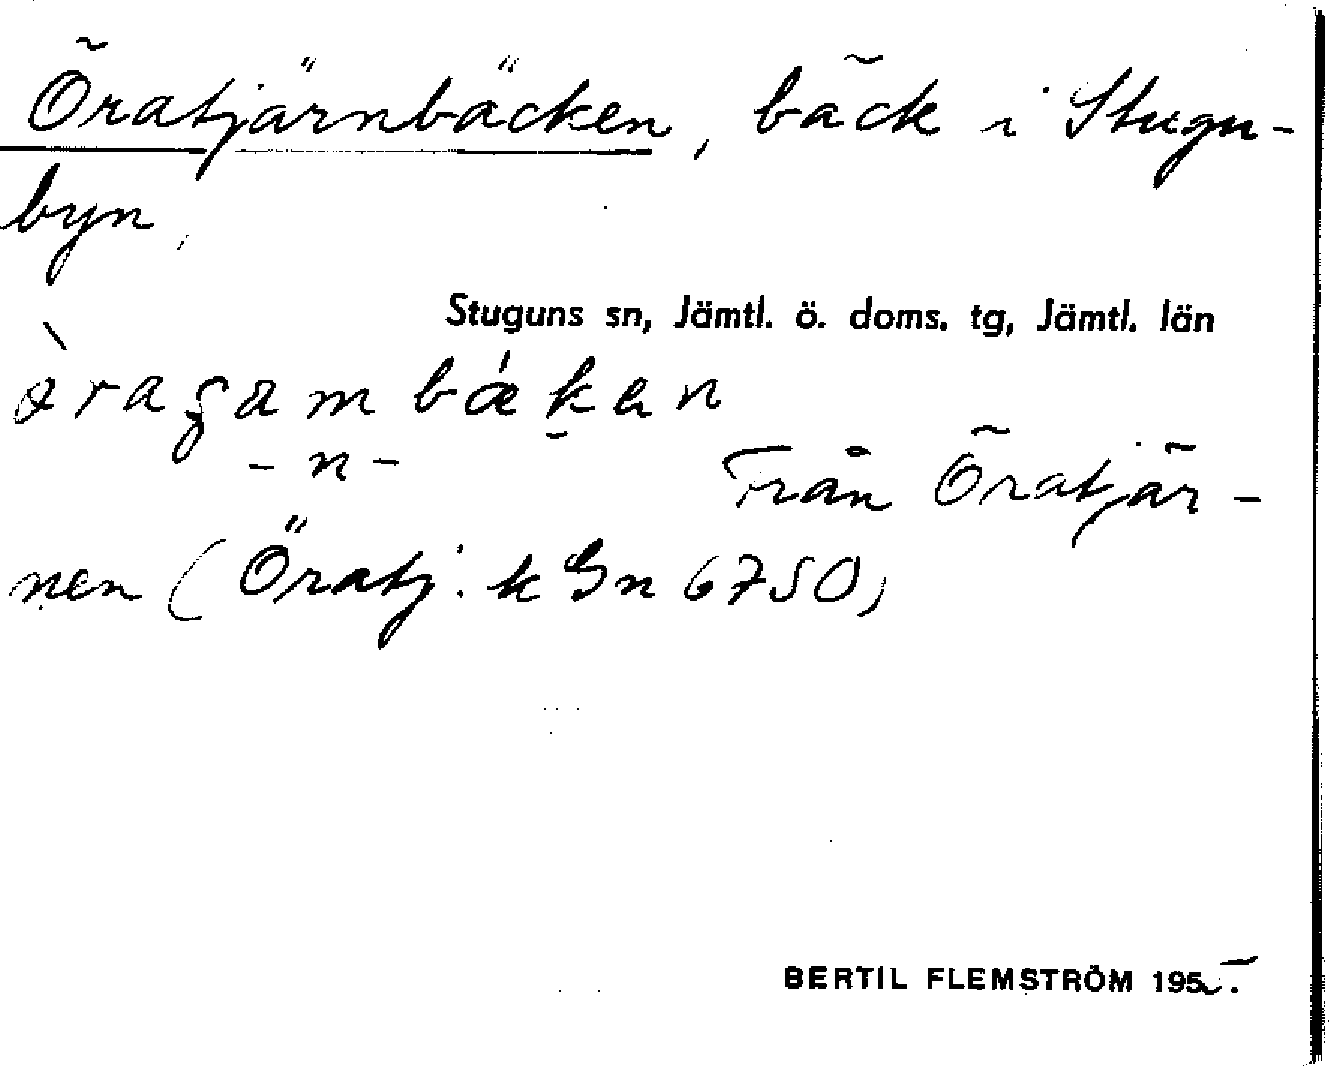 Öratjärnbäcken, bäck i Stugu-
byn,
Stuguns sn, Jämtl. ö. doms. tg, Jämtl. län
-n-
Från Öratjär-
nen (Öratj. k Gn 6750)
BERTIL FLEMSTRÖM 195